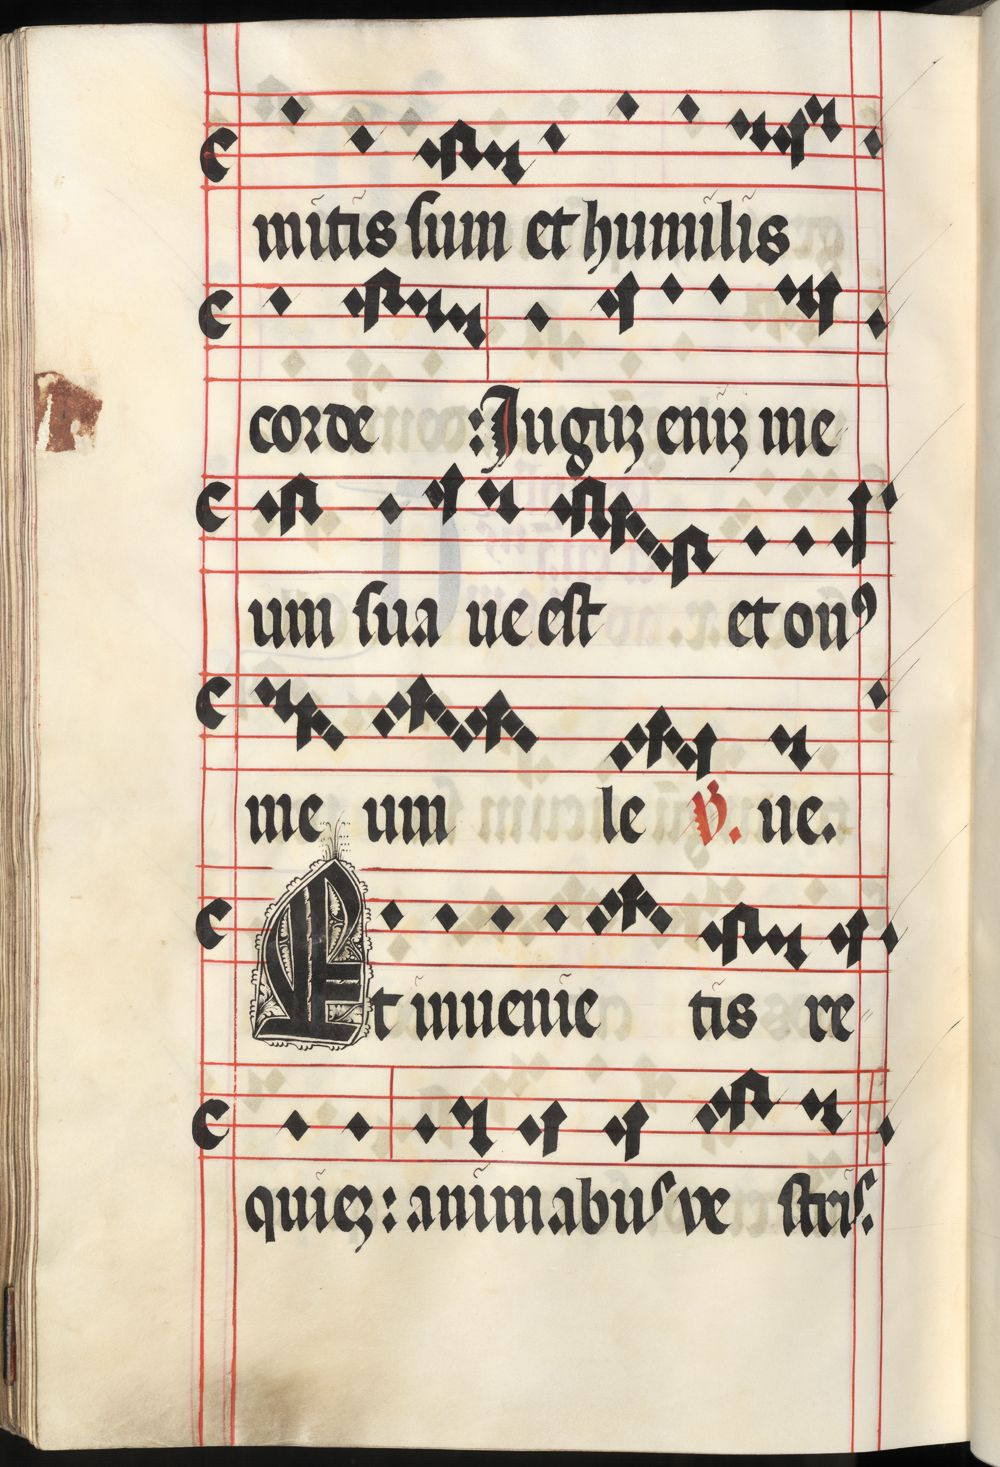 mitis sum et humilis
corde : Juguꝫ eniꝫ me
um sua ue est et onꝰ
me um le ℣. ue.
Et inuenie tis re
quieꝫ : animabus ve stris.